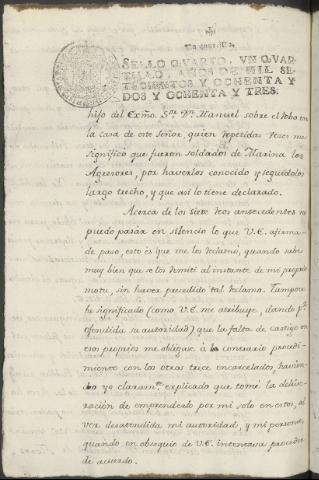 Un quartillo.
SELLO QVARTO, VN QVAR-
TILLO, AÑOS DE MIL SE-
TECIENTOS Y OCHENTA Y
DOS Y OCHENTA Y TRES.
hijo del Exmo. Sor. Dn. Manuel sobre el robo en
la casa de este Señor, quien repetidas veces me
significó que fueron soldados de Marina los
Agresores, por haverlos conocido y seguidolos
largo trecho, y que asi lo tiene declarado.
Acerca de los siete reos antecedentes no
puedo pasar en silencio lo que V.E. afirma
de paso, esto es que me los reclamó, quando sabe
muy bien que se los remití al instante de mi proprio
motu, sin haver precedido tal reclamo. Tampoco
he significado (como V.E. me atribuye, dando pr.
ofendida su autoridad) que la falta de castigo en
esos propios me obligase á lo contrario procedi-
miento con los otros trece encarcelados, havien-
do yo claramte. explicado que tomé la delibe-
ración de emprenderlo por mi solo en estos, al
ver desatendida mi autoridad, y mi persona,
quando en obsequio de V.E. intentava proceder
de acuerdo.